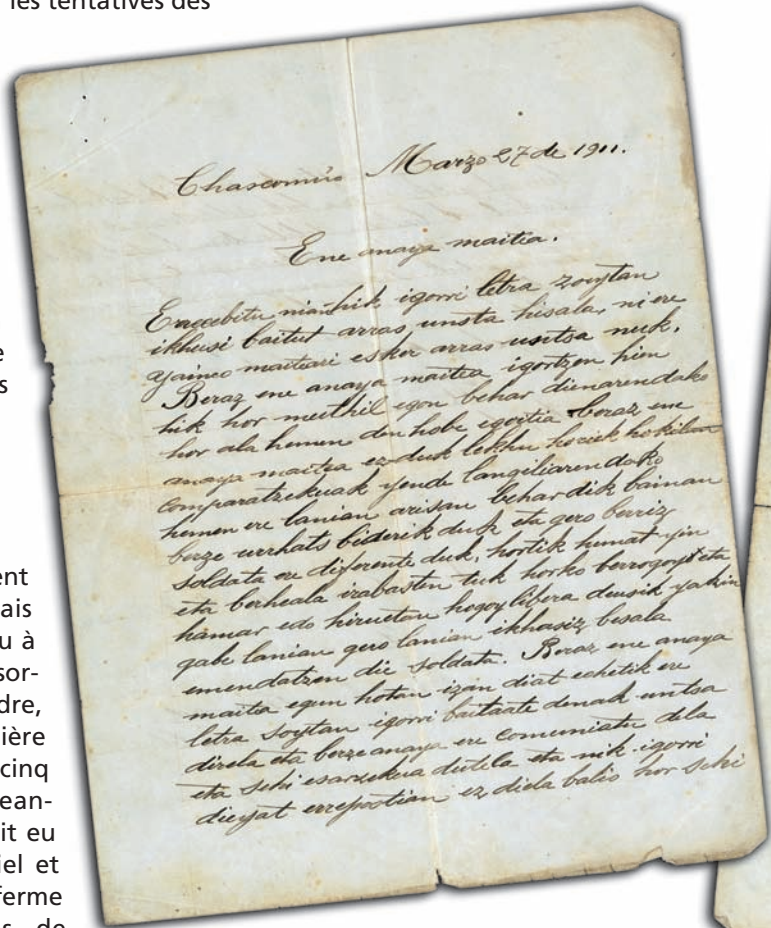 les tentatives des
Chascomús Marzo 27 de 1911.
Ene anaya maitia.
Errecebitu niain hik igorri letra zoiytan
ikhusi baitut arras unsta hisala, ni ere
yainco maitiari esker arras untsa nuk.
Beraz ene anaya maitea igortzen hien
hik hor muthil egon behar dienarendako
hor ala hemen den hobe egoitia beraz ene
anaya maitea ez duk lekhu hoeiek hokilan
comparatzekuak yende langiliarendako
hemen ere lanian arisan behar dik bainan
berze urrhats biderik duk eta gero berriz
soldata ere diferente duk, hortik hunat yin
eta berheala irabasten tuk horko berrogoyt eta
hamar edo hiruetan hogoy libera deusik yakin
gabe lanian gero lanian ikhasiz besala
emendatzen die soldata. Beraz ene anaya
maitia egun hotan izan diat echetik ere
letra soytan igorri baitaate denak untsa
direla eta berze anaya ere comuniatu dela
eta sehi esarzekua dutela eta nik igorri
dieyat errepostian ez diela balio hor sehi
e
s
ent
ais
u à
sor-
dre,
ière
cinq
ean-
it eu
iel et
ferme
s de